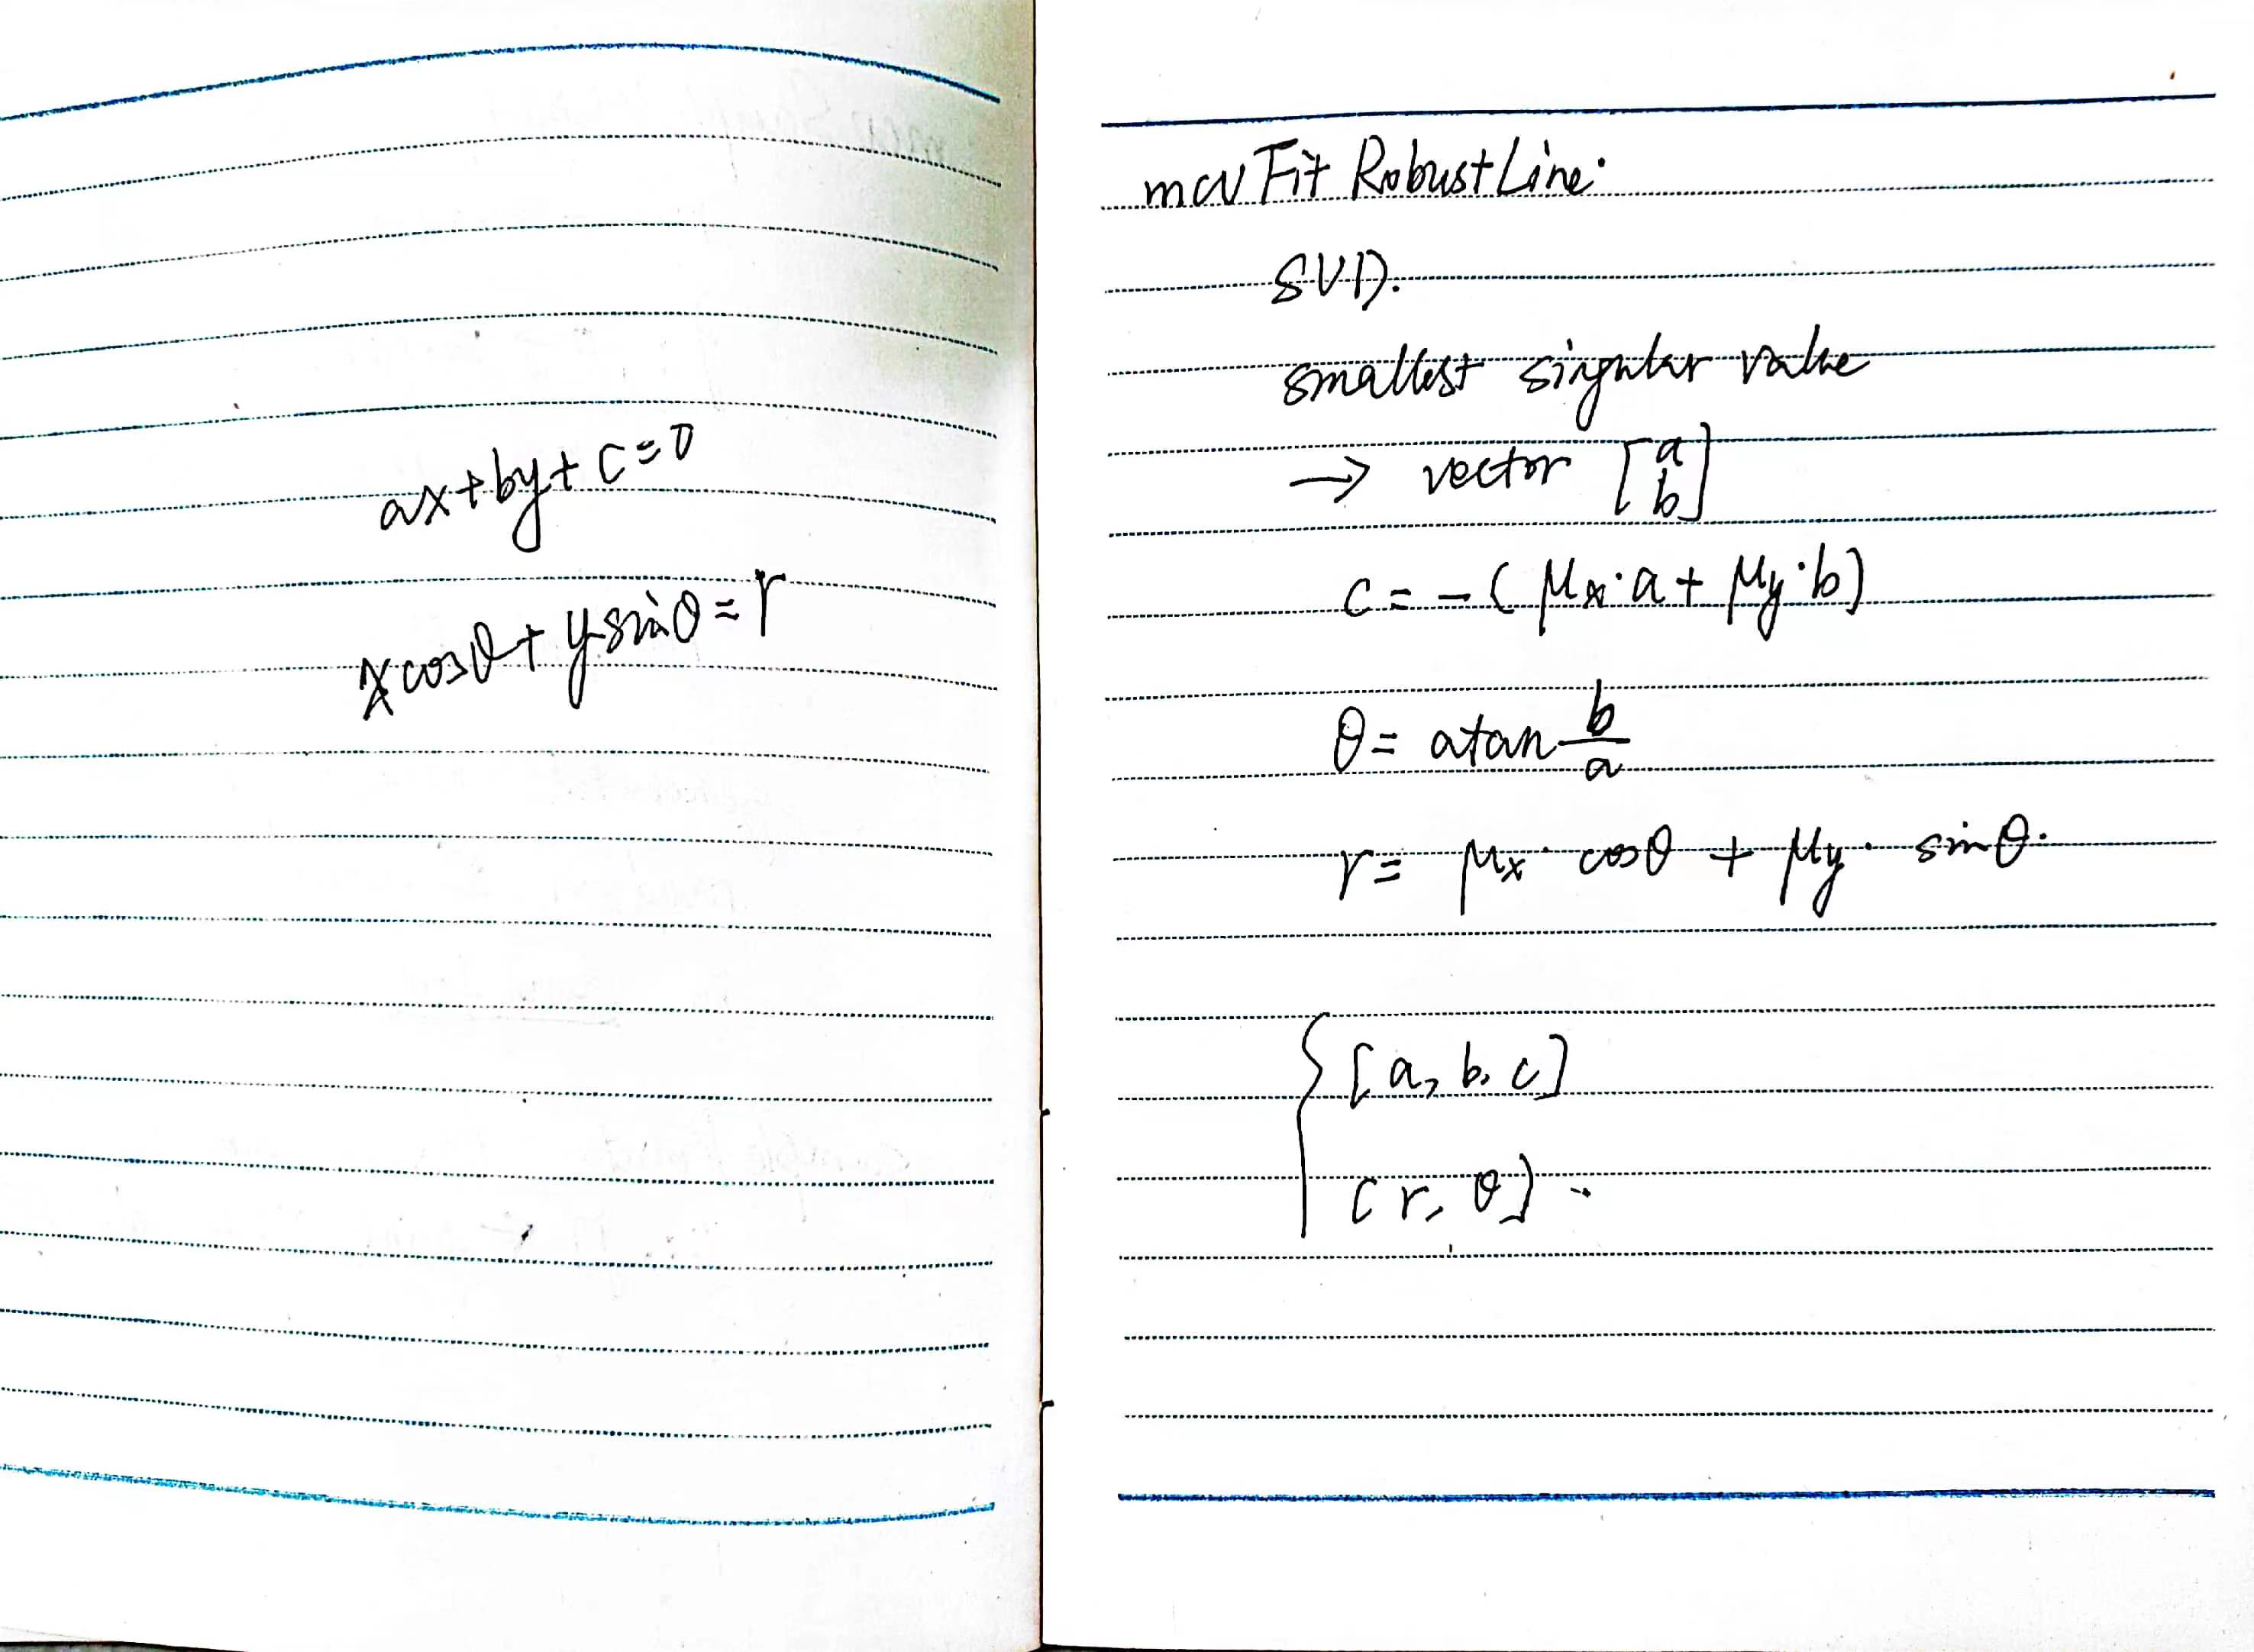 ax+by+c=0
xcosθ+ysinθ=r
mcvFitRobustLine.
SVD.
smallest singular value
→ vector [a b]
c=-(μx·a+μy·b)
θ=atan b/a
r=μx·cosθ+μy·sinθ.
{[a,b,c]
[r,θ].